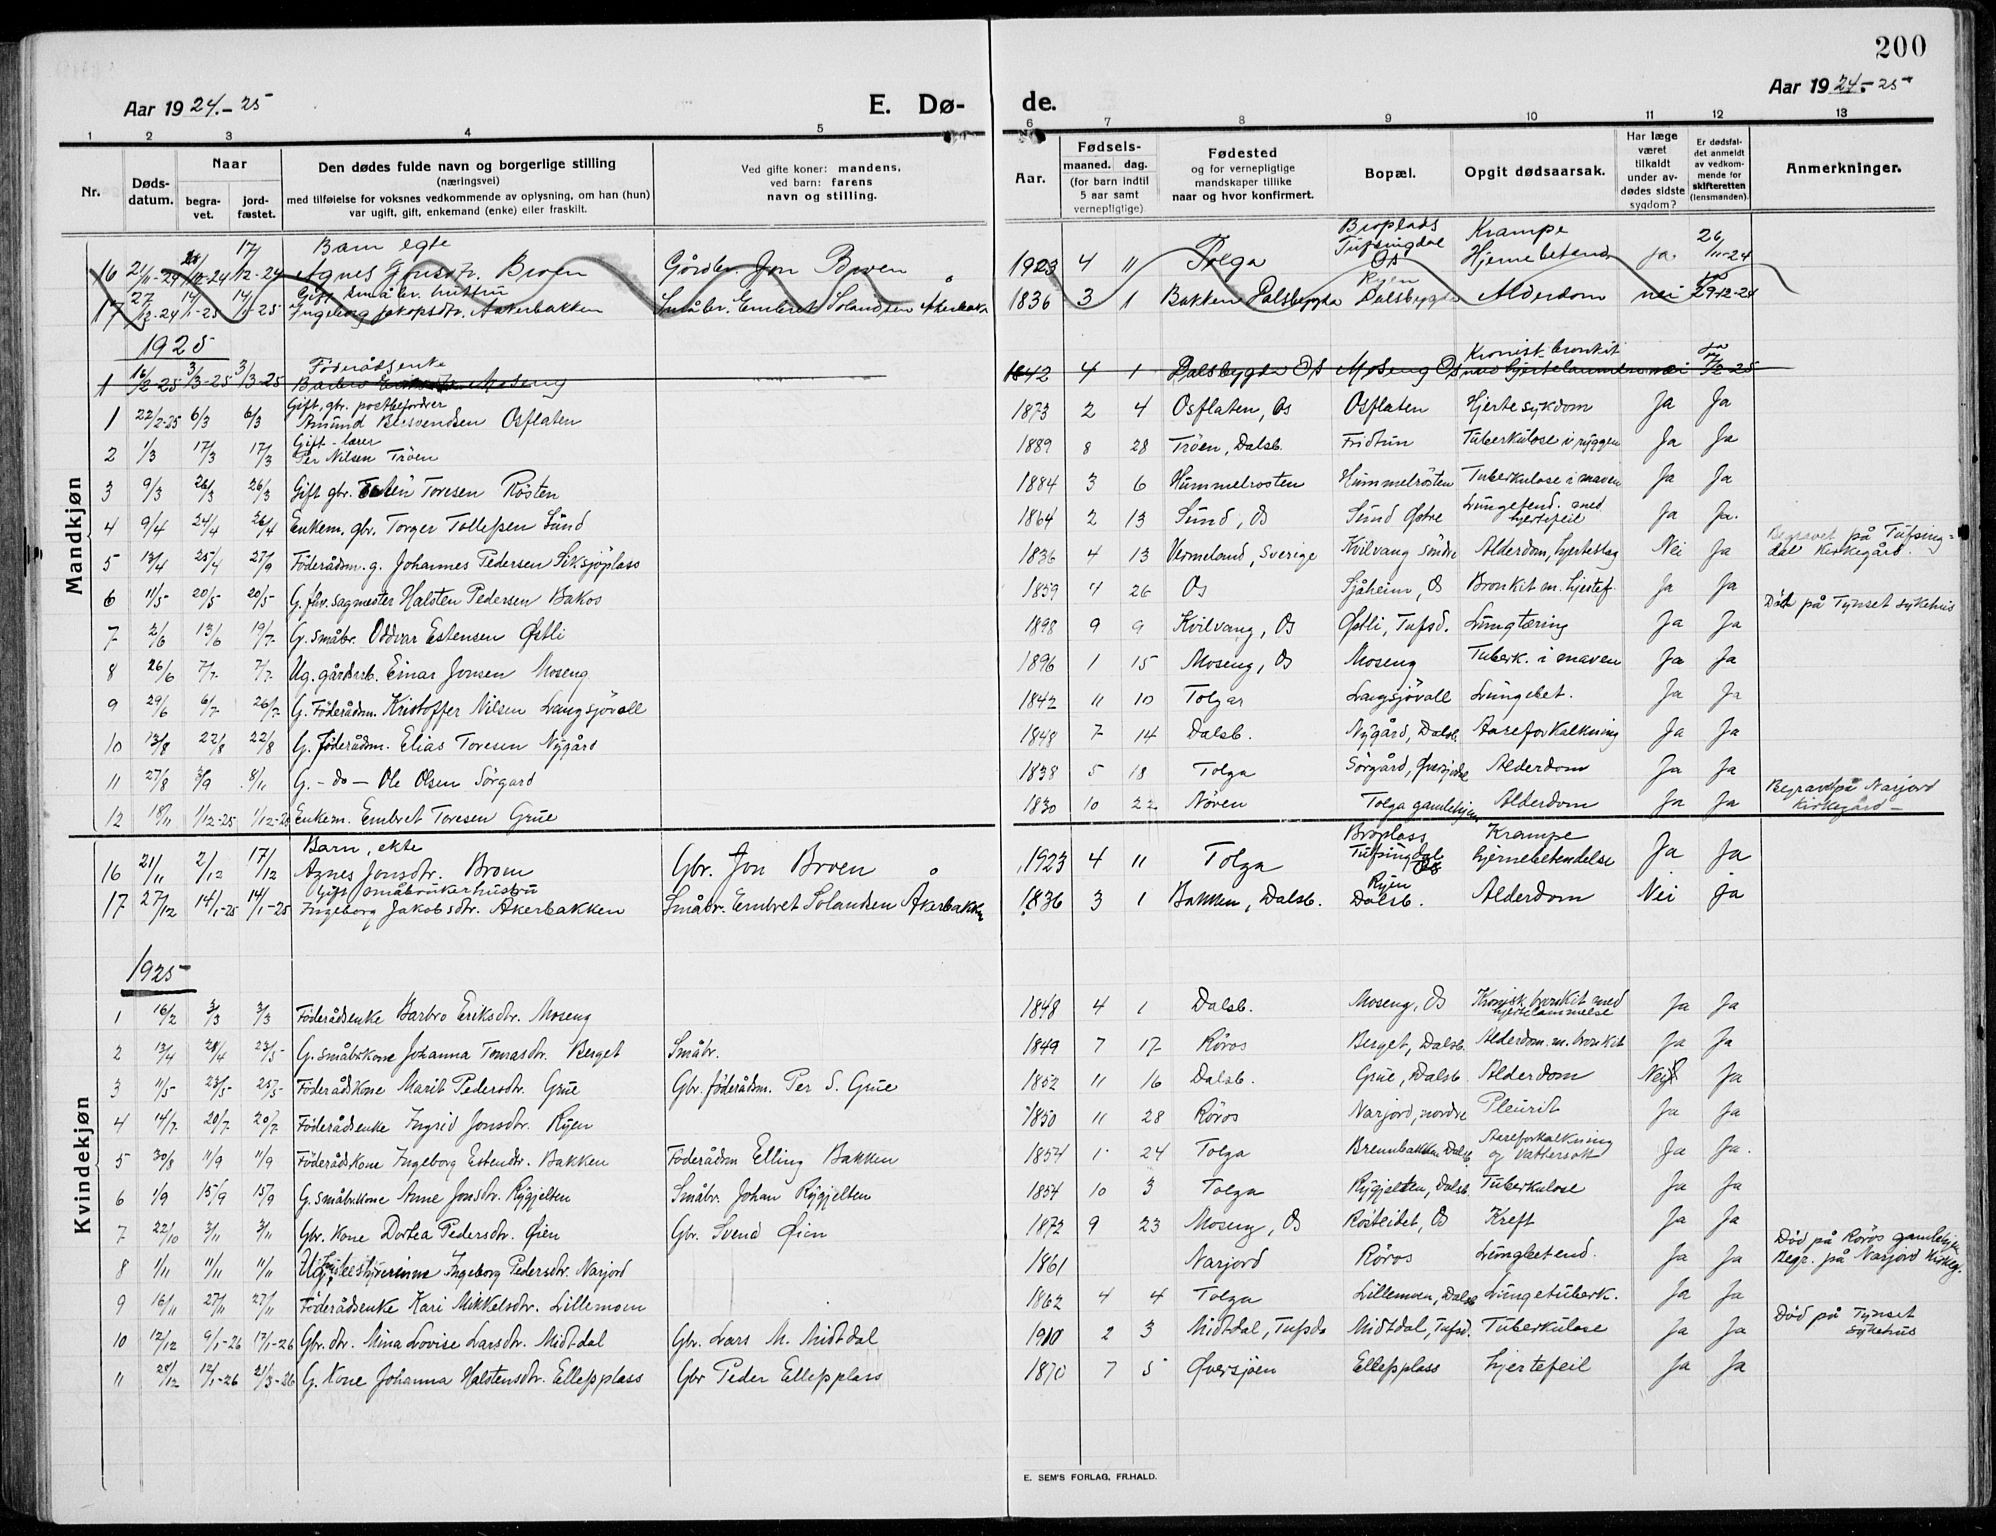 200
Aar 1924.-25
E. Dø-
de.
Aar 1924.-25
1 2 3 4 5 6 7 8 9 10 11 12 13
Nr.
Døds-datum.
Naar
begra-vet.
jord-fæstet.
Den dødes fulde navn og borgerlige stilling
(næringsvei)
med tilføielse for voksnes vedkommende av oplysning, om han (hun)
var ugift, gift, enkemand (enke) eller fraskilt.
Ved gifte koner: mandens,
ved barn: farens
navn og stilling.
Fødsels-
Aar.
maaned. dag.
(for barn indtil
5 aar samt
vernepligtige)
Fødested
og for vernepligtige
mandskaper tillike
naar og hvor konfirmert.
Bopæl.
Opgit dødsaarsak.
Har læge
været
tilkaldt
under av-
dødes sidste
sygdom?
Er dødsfal-
det anmeldt
av vedkom-
mende for
skifteretten
(lensmanden).
Anmerkninger.
Mandkjøn
Barn egte Broplads Tufsingdal Krampe 26/11-24
16 21/11-24 17/12-24 Agnes Jonsdr. Broen Gårdbr. Jon Broen 1923 4 11 Tolga Os Hjernebetend ja.
Gift småbr. hustru Ryen
17 27/12-24 14/1-25 14/1-25 Ingeborg Jakopsdr. Aakerbakken Småbr. Embret Solandsen Åkerbakk 1836 3 1 Bakken Dalsbygda Dalsbygda Alderdom nei 29-12-24
1925
Föderådsenke Kronisk bronkit
1 16/2-25 3/3-25 3/3-25 Moseng 1842 4 1 Dalsbygda Os Moseng Os nei
Gift, gbr. postbefordrer
1 22/2-25 6/3 6/3 Amund Bersvendsen Osflaten 1873 2 4 Osflaten, Os Osflaten Hjertesykdom Ja Ja
Gift - lærer
2 1/3 17/3 17/3 Per Nilsen Tröen 1889 8 28 Tröen, Dalsb. Fridtun Tuberkulose i ryggen Ja Ja
3 9/3 26/3 26/3 Gift gbr. Toresen Røsten 1884 3 6 Hummelrosten Hummelrösten Tuberkulose i maven Ja Ja
4 9/4 24/4 26/4 Enkem. gbr. Torger Tollefsen Sund 1864 2 13 Sund, Os Sund Østre Lungebetend. med hjertefeil Ja Ja.
5 13/4 25/4 27/9 Föderådm. g. Johannes Pedersen Siksjöplass 1836 4 13 Vermeland, Sverige Kvilvang Söndre Alderdom, hjerteslag Nei Ja Begravet på Tufsing-dal Kirkegård.
6 11/5 20/5 20/5 G. fhv. sagmester Halsten Pedersen Bakos 1859 4 26 Os Sjåheim, Os Bronkit m. hjertef. Ja Ja
7 2/6 13/6 19/7 G. småbr. Oddvar Estensen Østli 1898 9 9 Kvilvang, Os Østli, Tufsd. Lungtæring Ja Ja Död på Tynset sykehus
8 26/6 7/7 7/7 Ug. gårdarb. Einar Jonsen Moseng 1896 1 15 Moseng, Os Moseng Tuberk. i maven Ja Ja
9 29/6 6/7 26/7 G. Föderådsm. Kristoffer Nilsen Langsjövoll 1842 11 10 Tolga Langsjövoll Lungebet. Ja Ja
10 13/8 22/8 22/8 G. föderådm. Elias Toresen Nygård 1848 7 14 Dalsb. Nygård, Dalsb. Aareforkalkning Ja Ja
11 27/8 3/9 8/11 G. - do - Ole Olsen Sörgard 1838 5 18 Tolga Sörgård, Alderdom Ja Ja
12 18/11 1/12-25 1/12-25 Enkem. Embret Toresen Grue 1830 10 22 Nören Tolga gamlehjem Alderdom Ja Ja Begravd på Narjord Kirkegård -
Kvindekjøn
Barn, ekte Broplass Krampe
16 21/11 2/12 17/12 Agnes Jonsdr. Broen Gbr. Jon Broen 1923 4 11 Tolga Tufsingdal Os hjernebetendelse Ja Ja
Gift småbrukerhustru Ryen
17 27/12 14/1-25 14/1-25 Ingeborg Jakobsdr. Åkerbakken Småbr. Embret Solandsen Åkerbakken 1836 3 1 Bakken, Dalsb. Dalsb. Alderdom Nei ja
1925
1 16/2 3/3 3/3 Föderådsenke Barbro Eriksdr. Moseng 1848 4 1 Dalsb. Moseng, Os Kronisk bronkit med hjertelammelse Ja Ja
2 13/4 28/4 23/5 G. småbr.kone Johanna Tomasdr. Berget Småbr. 1849 7 17 Röros Berget, Dalsb. Alderdom m. bronkit Ja Ja
3 11/5 23/5 25/5 Föderådskone Marit Pedersdr. Grue Gbr. föderådm. Per S. Grue 1852 11 16 Dalsb. Grue, Dalsb Alderdom Nei Ja
4 14/7 20/7 20/7 Föderådsenke Ingrid Jonsdr. Ryen 1850 11 28 Röros Narjord, nordre Pleurit Ja Ja
5 30/8 11/9 11/9 Föderådskone Ingeborg Estensdr. Bakken Föderådsm Elling Bakken 1854 1 24 Tolga Brennbakken Dalsb Aareforkalkning og vattersott Ja Ja.
6 1/9 15/9 15/9 G. småbr.kone Anne Jonsdr. Rygjelten Småbr. Johan Rygjelten 1854 10 3 Tolga Rygjelten, Dalsb. Tuberkulose Ja Ja
7 22/10 3/11 3/11 Gbr. kone Dortea Pedersdr. Øien Gbr. Svend Øien 1872 9 23 Moseng, Os Röseidet, Os Kreft Ja Ja
8 1/11 11/11 11/11 Ug. Ingeborg Pedersdr. Narjord 1861 Narjord Röros Lungbetend. Ja Ja Död på Röros gamlehjem Begr. på Narjord Kirkeg.
9 16/11 27/11 27/11 Föderådsenke Kari Mikkelsdr. Lillemoen 1862 4 4 Tolga Lillemoen, Dalsb Lungetuberk. Ja Ja
10 12/12 9/1-26 17/1-26 Gbr. dr. Mina Lovise Larsdr. Midtdal Gbr. Lars M. Midtdal 1910 2 3 Midtdal, Tufsd Midtdal, Tufsd. Tuberkulose Ja Ja Död på Tynset Sykehus
11 28/12 12/1-26 21/3-26 G. Kone Johanna Halstensdr. Ellefsplass Gbr Peder Ellefsplass 1870 7 5 Øversjöen Ellefsplass hjertefeil Ja Ja
E. SEM'S FORLAG, FR.HALD.